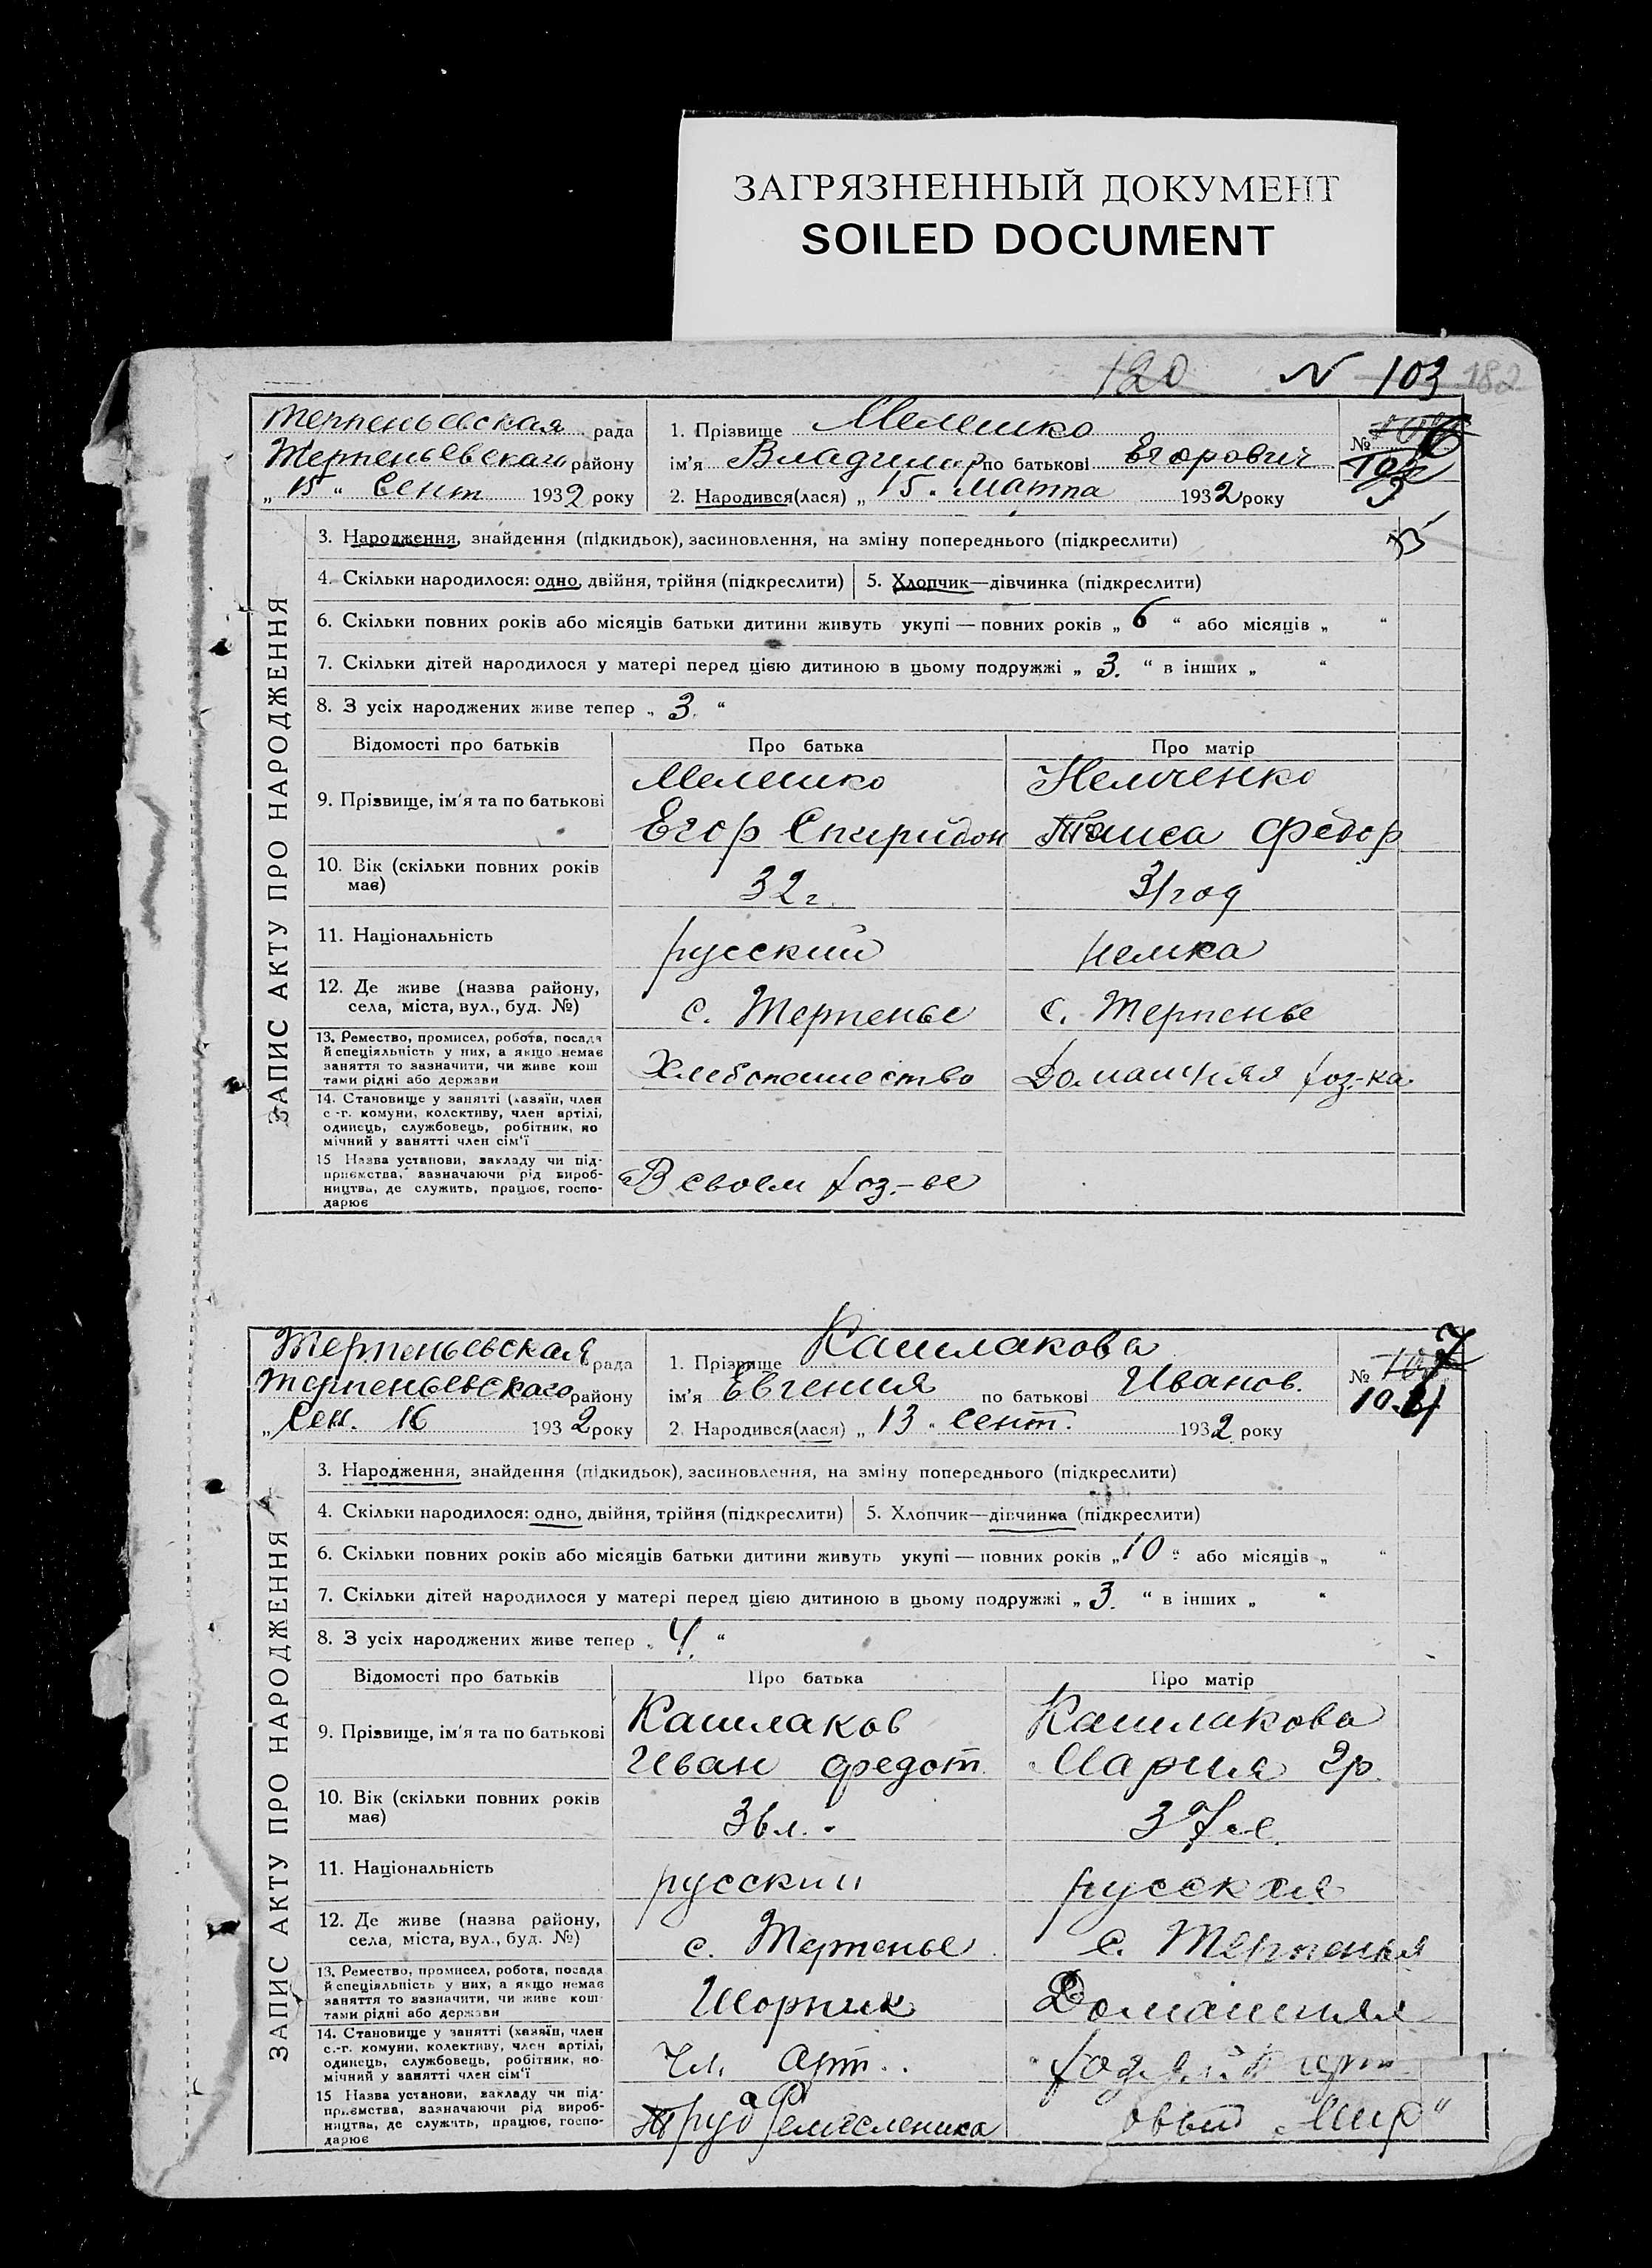 ЗАГРЯЗНЕННЫЙ ДОКУМЕНТ
SOILED DOCUMENT
120 N 103 182
Терпеньевская рада
Терпеньевскаго району
„ 15 “ Сент 1932 року
1. Прізвище Мелешко
ім'я Владимир по батькові Егорович
2. Народився(лася) „ 15 “ марта 1932 року
№ 6
3
ЗАПИС АКТУ ПРО НАРОДЖЕННЯ
3. Народження, знайдення (підкидьок), засиновлення, на зміну попереднього (підкреслити)
4. Скільки народилося: одно, двійня, трійня (підкреслити) 5. Хлопчик—дівчинка (підкреслити)
6. Скільки повних років або місяців батьки дитини живуть укупі — повних років „ 6 “ або місяців „ “
7. Скільки дітей народилося у матері перед цією дитиною в цьому подружжі „ 3. “ в інших „ “
8. З усіх народжених живе тепер „ 3. “
Відомості про батьків Про батька Про матір
9. Прізвище, ім'я та по батькові
Мелешко
Егор Спиридон
Немченко
Таиса Федор
10. Вік (скільки повних років
має)
32 г. 31 год
11. Національність русский немка
12. Де живе (назва району,
села, міста, вул., буд. №)
с. Терпенье с. Терпенье
13. Ремество, промисел, робота, посада
й спеціяльність у них, а якщо немає
заняття то зазначити, чи живе кош
тами рідні або держави
Хлебопашество Домашняя хоз.-ка
14. Становище у занятті (хазяїн, член
с.-г. комуни, колективу, член артілі,
одинець, службовець, робітник, по
мічний у занятті член сім'ї
15 Назва установи, закладу чи під-
приємства, зазначаючи рід вироб-
ництва, де служить, працює, госпо-
дарює
В своем хоз.-ве
Терпеньевская рада
Терпеньевскаго району
„ Сен. 16 1932 року
1. Прізвище Кашлакова
ім'я Евгения по батькові Иванов.
2. Народився(лася) „ 13 “ Сент. 1932 року
№ 7
ЗАПИС АКТУ ПРО НАРОДЖЕННЯ
3. Народження, знайдення (підкидьок), засиновлення, на зміну попереднього (підкреслити)
4. Скільки народилося: одно, двійня, трійня (підкреслити) 5. Хлопчик—дівчинка (підкреслити)
6. Скільки повних років або місяців батьки дитини живуть укупі — повних років „ 10 “ або місяців „ “
7. Скільки дітей народилося у матері перед цією дитиною в цьому подружжі „ 3. “ в інших „ “
8. З усіх народжених живе тепер „ 4. “
Відомості про батьків Про батька Про матір
9. Прізвище, ім'я та по батькові
Кашлаков
Иван Федот.
Кашлакова
Мария Гр.
10. Вік (скільки повних років
має)
36 л. 37 л.
11. Національність русский русская
12. Де живе (назва району,
села, міста, вул., буд. №)
с. Терпенье с. Терпенья
13. Ремество, промисел, робота, посада
й спеціяльність у них, а якщо немає
заняття то зазначити, чи живе кош-
тами рідні або держави
Шорник Домашняя
14. Становище у занятті (хазяїн, член
с.-г. комуни, колективу, член артілі,
одинець, службовець, робітник, по-
мічний у занятті член сім'ї
Чл. Арт.
15 Назва установи, закладу чи під-
приємства, зазначаючи рід вироб-
ництва, де служить, працює, госпо-
дарює
Труд Ремесленика овый Мир“